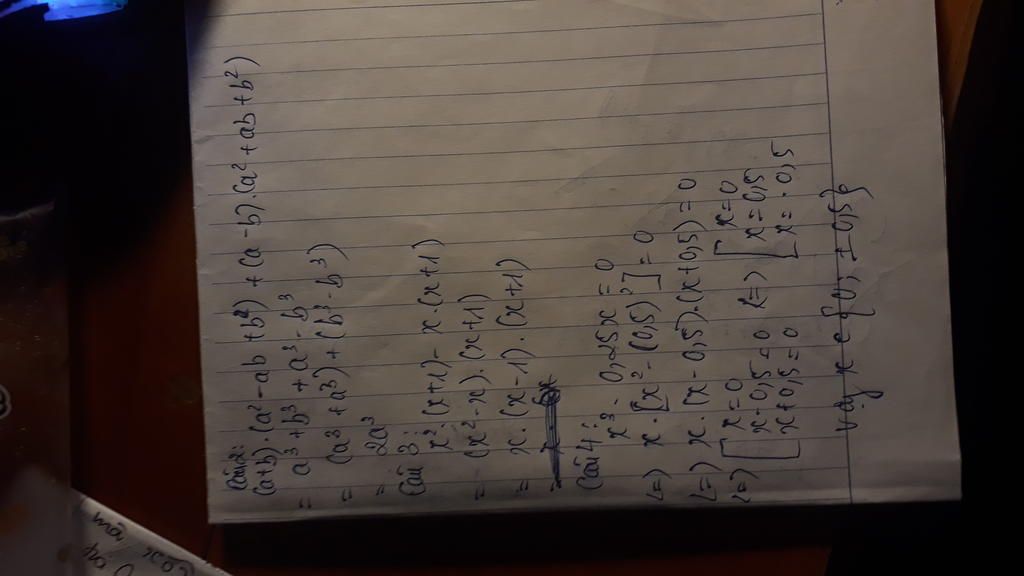 Câu 2:
(a+b).(a² - ab + b²) + (a - b).(a² + ab + b²)
= a³ + b³ + a³ - b³
= (a³ + a³) + (b³ - b³)
= 2a³
Câu 3:
x².(x+1) - x.(x+1)
= (x² - x).(x+1)
= x.(x-1).(x+1)
=
Câu 4:
x³ - 0,25x = 0
<=> x.[x² - (0,5)²] = 0
<=> x.(x - 0,5).(x + 0,5) = 0
<=> [ x = 0 <=> [ x = 0
x - 0,5 = 0 x = 0,5
x + 0,5 = 0 x = -0,5
Vậy x ∈ {0; ± 0,5}